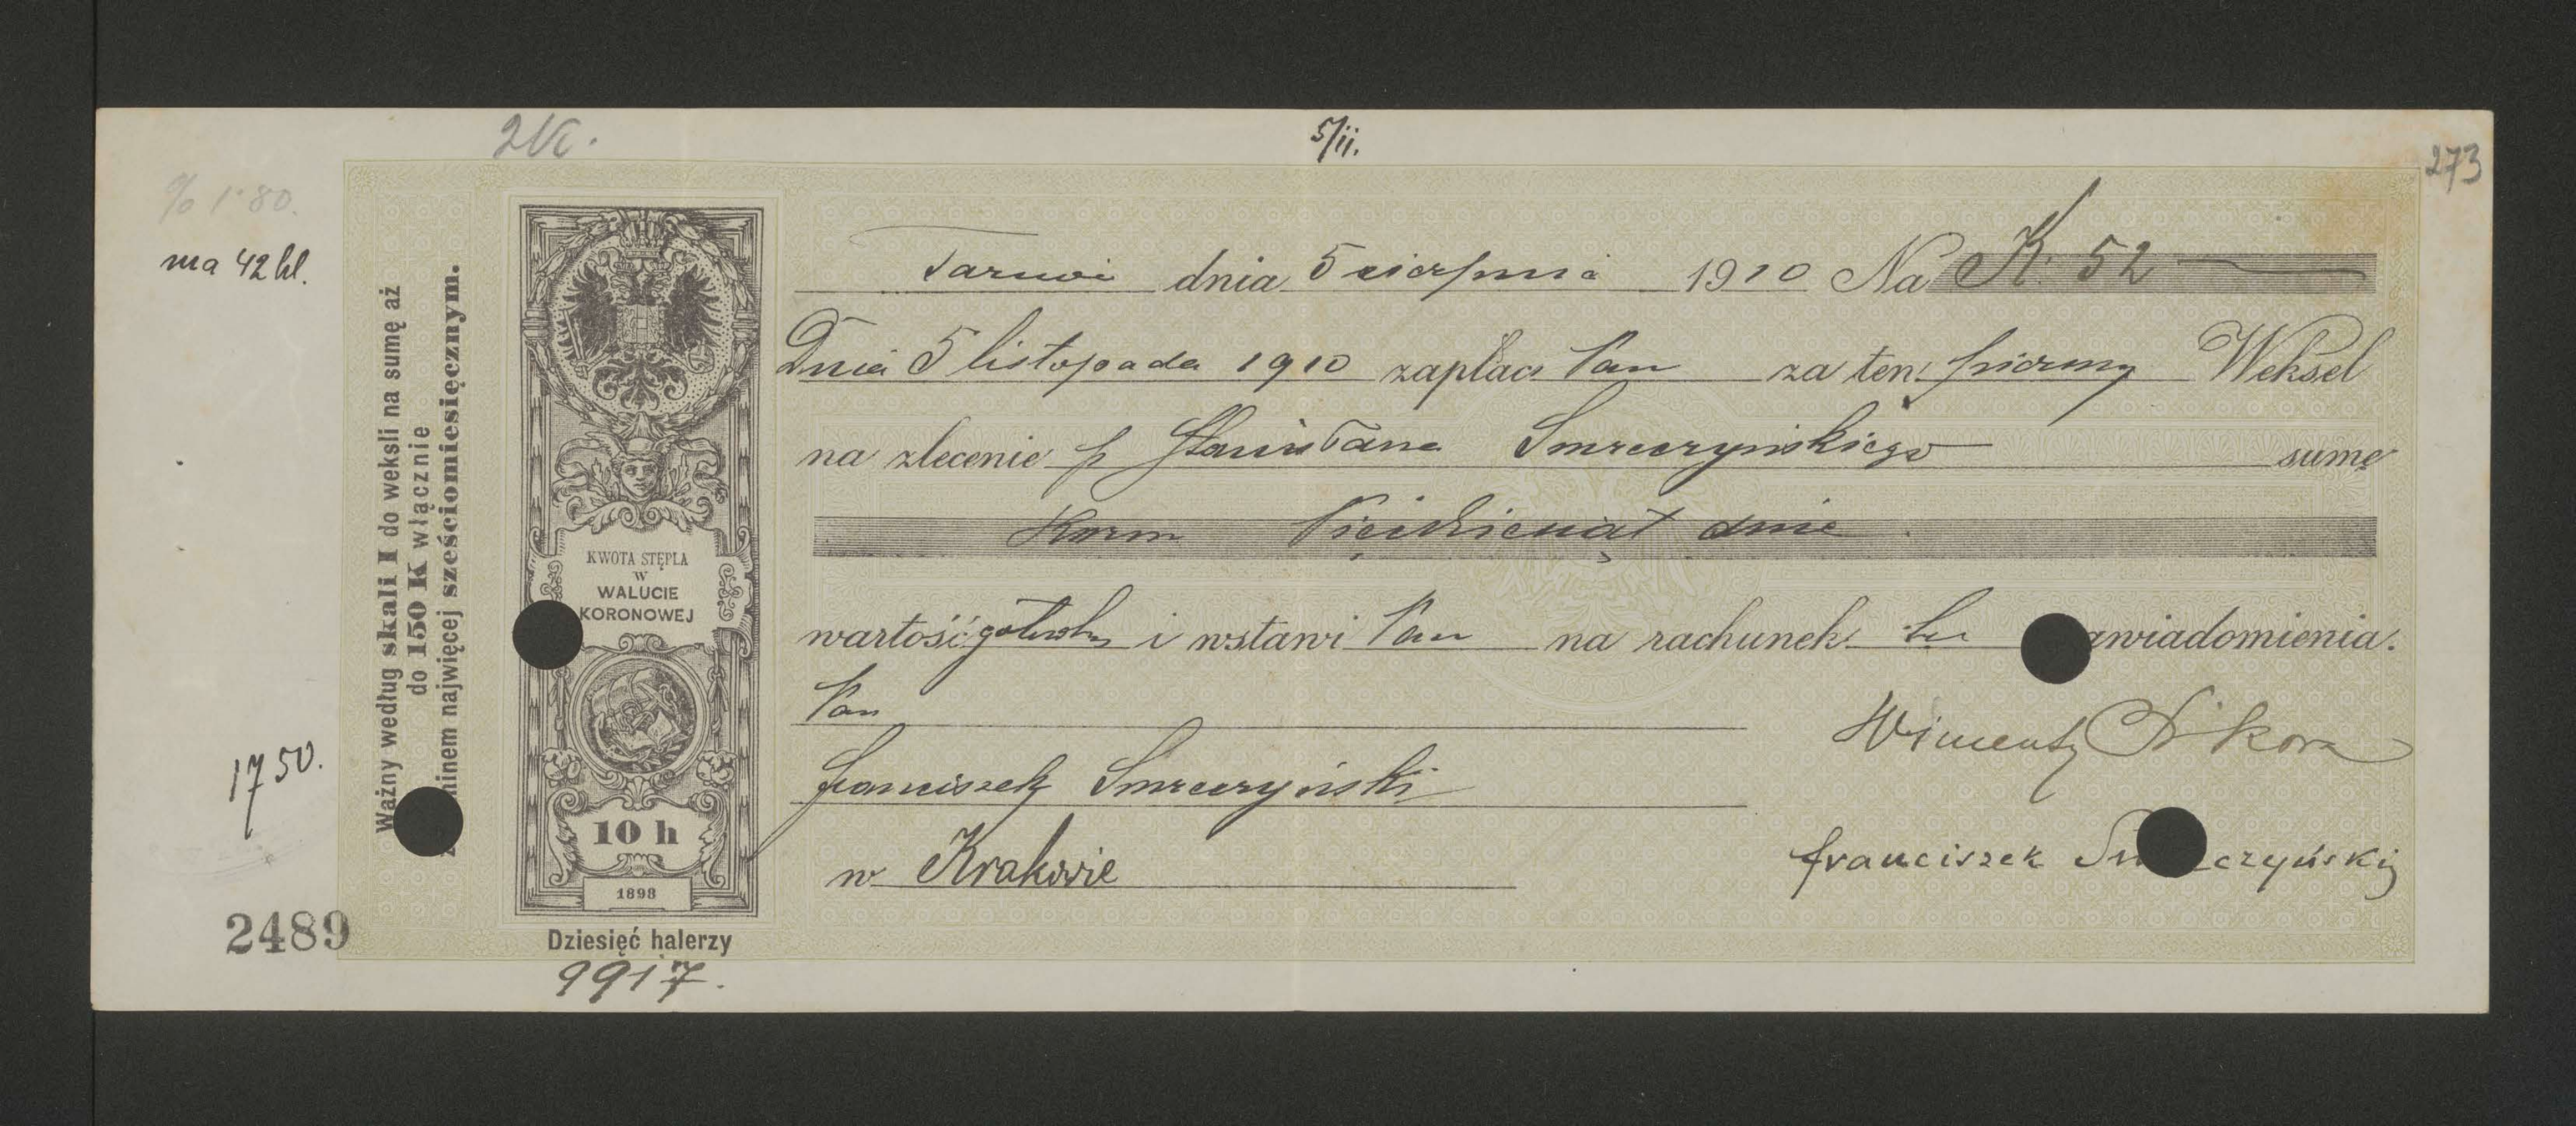 2K.
5/ii.
273
% 1·80.
ma 42 hl.
17 50.
2489
Ważny według skali I do weksli na sumę aż
do 150 K włącznie
minem najwięcej sześciomiesięcznym.
KWOTA STĘPLA
W
WALUCIE
KORONOWEJ
10 h
1898
Dziesięć halerzy
9917.
dnia 5 sierpnia 1910 Na K. 52
Dnia 5 listopada 1910 zapłaci Pan za ten pierwszy Weksel
na zlecenie p Stanisława Smreczyńskiego sumę
Koron Pięćdziesiąt dwie
wartość gotówką i wstawi Pan na rachunek bez awiadomienia.
Pan
Franciszek Smreczyński
w Krakowie
Wincenty Sikora
Franciszek Sm czyński